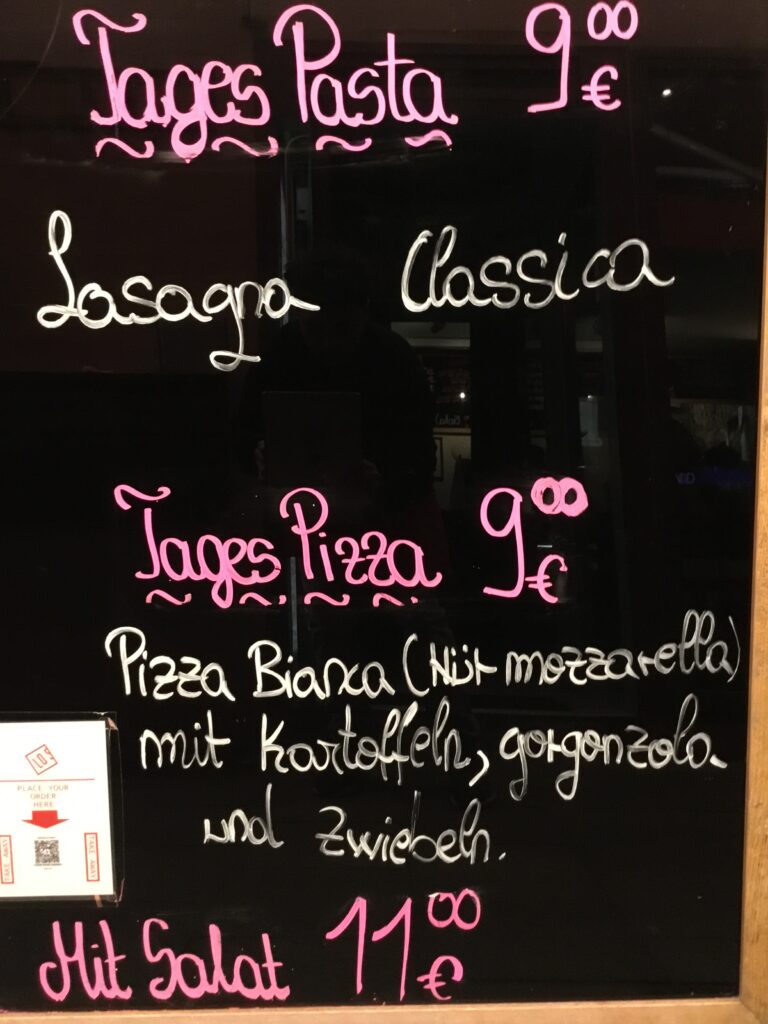 Tages Pasta 9⁰⁰ €
Lasagna Classica
Tages Pizza 9⁰⁰ €
Pizza Bianca (Nür mozzarella)
mit Kartoffeln, gorgonzola
und Zwiebeln.
PLACE YOUR
ORDER
HERE
TAKE AWAY
TAKE AWAY
Mit Salat 11⁰⁰ €